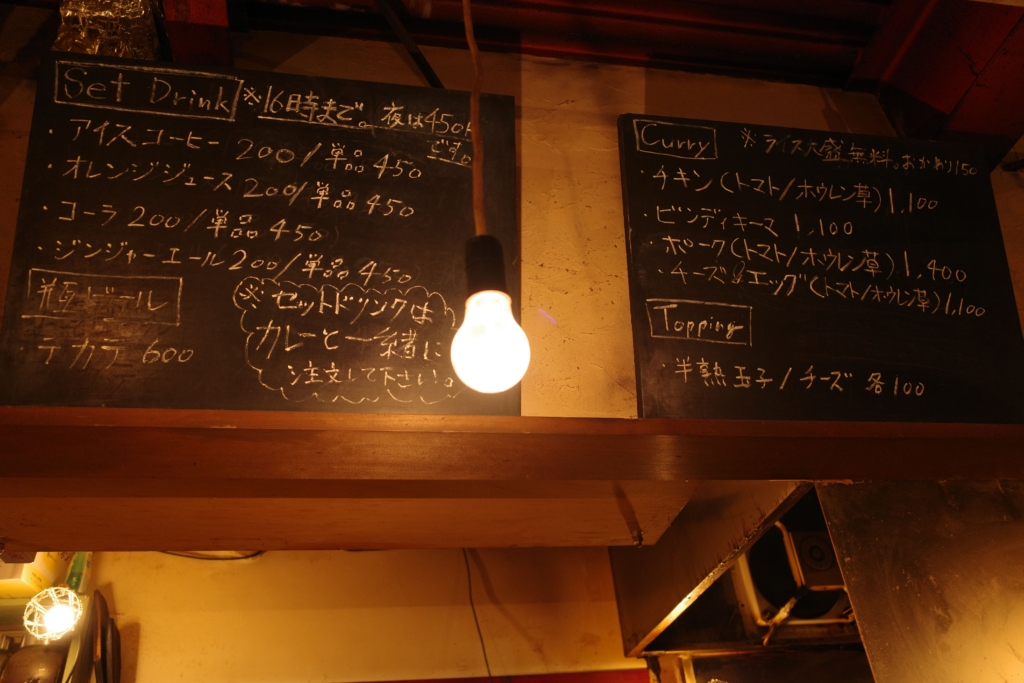 Set Drink ※16時まで。夜は450円です。
・アイスコーヒー 200/単品450
・オレンジジュース 200/単品450
・コーラ 200/単品450
・ジンジャーエール 200/単品450
瓶ビール
・テカテ 600
※セットドリンクは
カレーと一緒に
注文して下さい。
Curry ※ライス大盛無料。おかわり150
・チキン(トマト/ホウレン草)1,100
・ビンディキーマ 1,100
・ポーク(トマト/ホウレン草)1,400
・チーズ&エッグ(トマト/ホウレン草)1,100
Topping
・半熟玉子/チーズ 各100